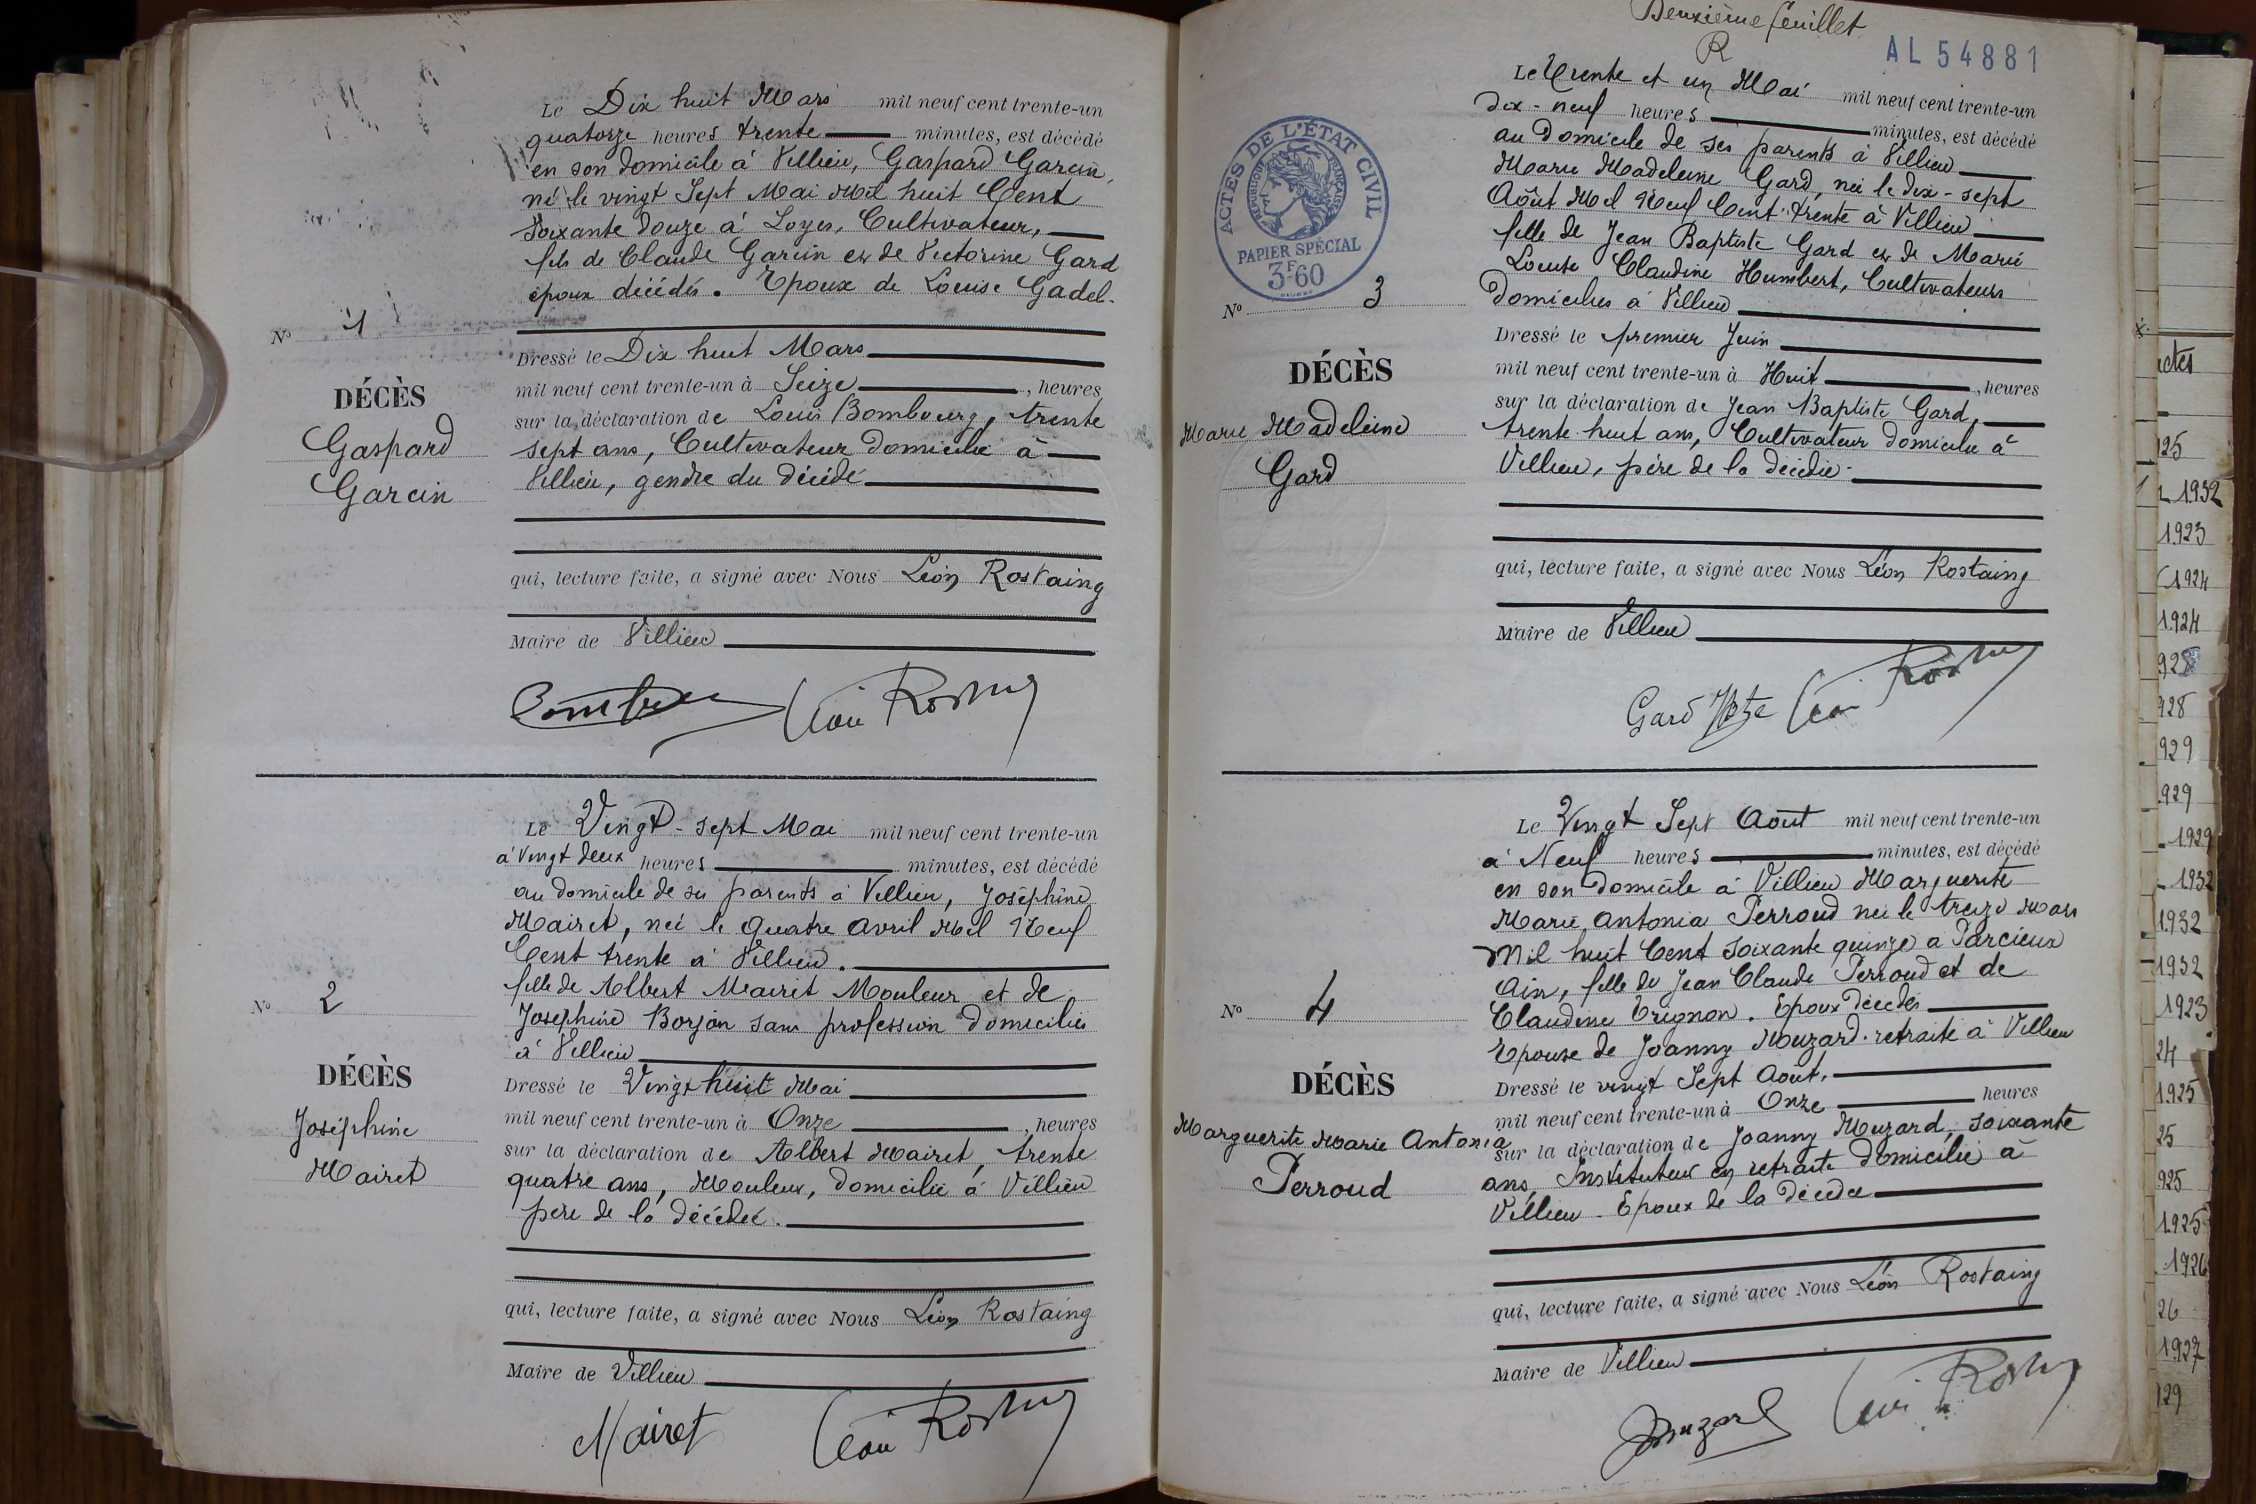 Le Dix huit Mars mil neuf cent trente-un
quatorze heures trente minutes, est décédé
en son domicile à Villieu, Gaspard Garcin,
né le vingt Sept Mai Mil huit Cent
Soixante douze à Loyes, Cultivateur,
fils de Claude Garcin et de Victorine Gard
époux décédés. Epoux de Louise Gadel.
No 1
Dressé le Dix huit Mars
mil neuf cent trente-un à Seize, heures
DÉCÈS
sur la déclaration de Louis Bombourg, trente
Gaspard
sept ans, Cultivateur domicilié à
Garcin
Villieu, gendre du décédé
qui, lecture faite, a signé avec Nous Léon Rostaing
Maire de Villieu
Le Vingt-sept Mai mil neuf cent trente-un
à vingt deux heures minutes, est décédé
au domicile de ses parents à Villieu, Joséphine
Mairet, née le quatre avril Mil Neuf
Cent trente à Villieu.
fille de Albert Mairet Mouleur et de
No 2
Joséphine Borjon sans profession domiciliés
à Villieu
DÉCÈS
Dressé le Vingt huit Mai
Joséphine
mil neuf cent trente-un à Onze, heures
Mairet
sur la déclaration de Albert Mairet, trente
quatre ans, Mouleur, domicilié à Villieu
père de la décédée.
qui, lecture faite, a signé avec Nous Léon Rostaing
Maire de Villieu
Mairet Léon Rostaing
Deuxième feuillet
R
AL 54881
Le trente et un Mai mil neuf cent trente-un
dix-neuf heures minutes, est décédé
au domicile de ses parents à Villieu
Marie Madeleine Gard, née le dix-sept
Août Mil Neuf Cent trente à Villieu
fille de Jean Baptiste Gard et de Marie
Louise Claudine Humbert, Cultivateurs
domiciliés à Villieu
ACTES DE L'ÉTAT CIVIL
RÉPUBLIQUE FRANÇAISE
PAPIER SPÉCIAL
3F60
No 3
Dressé le premier Juin
DÉCÈS
mil neuf cent trente-un à Huit, heures
Marie Madeleine
sur la déclaration de Jean Baptiste Gard,
Gard
trente-huit ans, Cultivateur domicilié à
Villieu, père de la décédée.
qui, lecture faite, a signé avec Nous Léon Rostaing
Maire de Villieu
Gard Jn Bte Léon Rostaing
Le Vingt Sept Août mil neuf cent trente-un
à Neuf heures minutes, est décédé
en son domicile à Villieu Marguerite
Marie Antonia Perroud née le treize Mars
Mil huit Cent Soixante quinze à Parcieux
Ain, fille de Jean Claude Perroud et de
No 4
Claudine Trignon. Epoux décédés
Epouse de Joanny Muzard. retraité à Villieu
DÉCÈS
Dressé le vingt Sept Août.
mil neuf cent trente-un à Onze heures
Marguerite Marie Antonia
sur la déclaration de Joanny Muzard, soixante
Perroud
ans Instituteur en retraite domicilié à
Villieu. Epoux de la décédée
qui, lecture faite, a signé avec Nous Léon Rostaing
Maire de Villieu
Muzard Léon Rostaing
1932
1923
1924
1924
928
929
929
1929
1932
1932
1932
1923
24
1925
25
925
1925
1926
26
1927
29